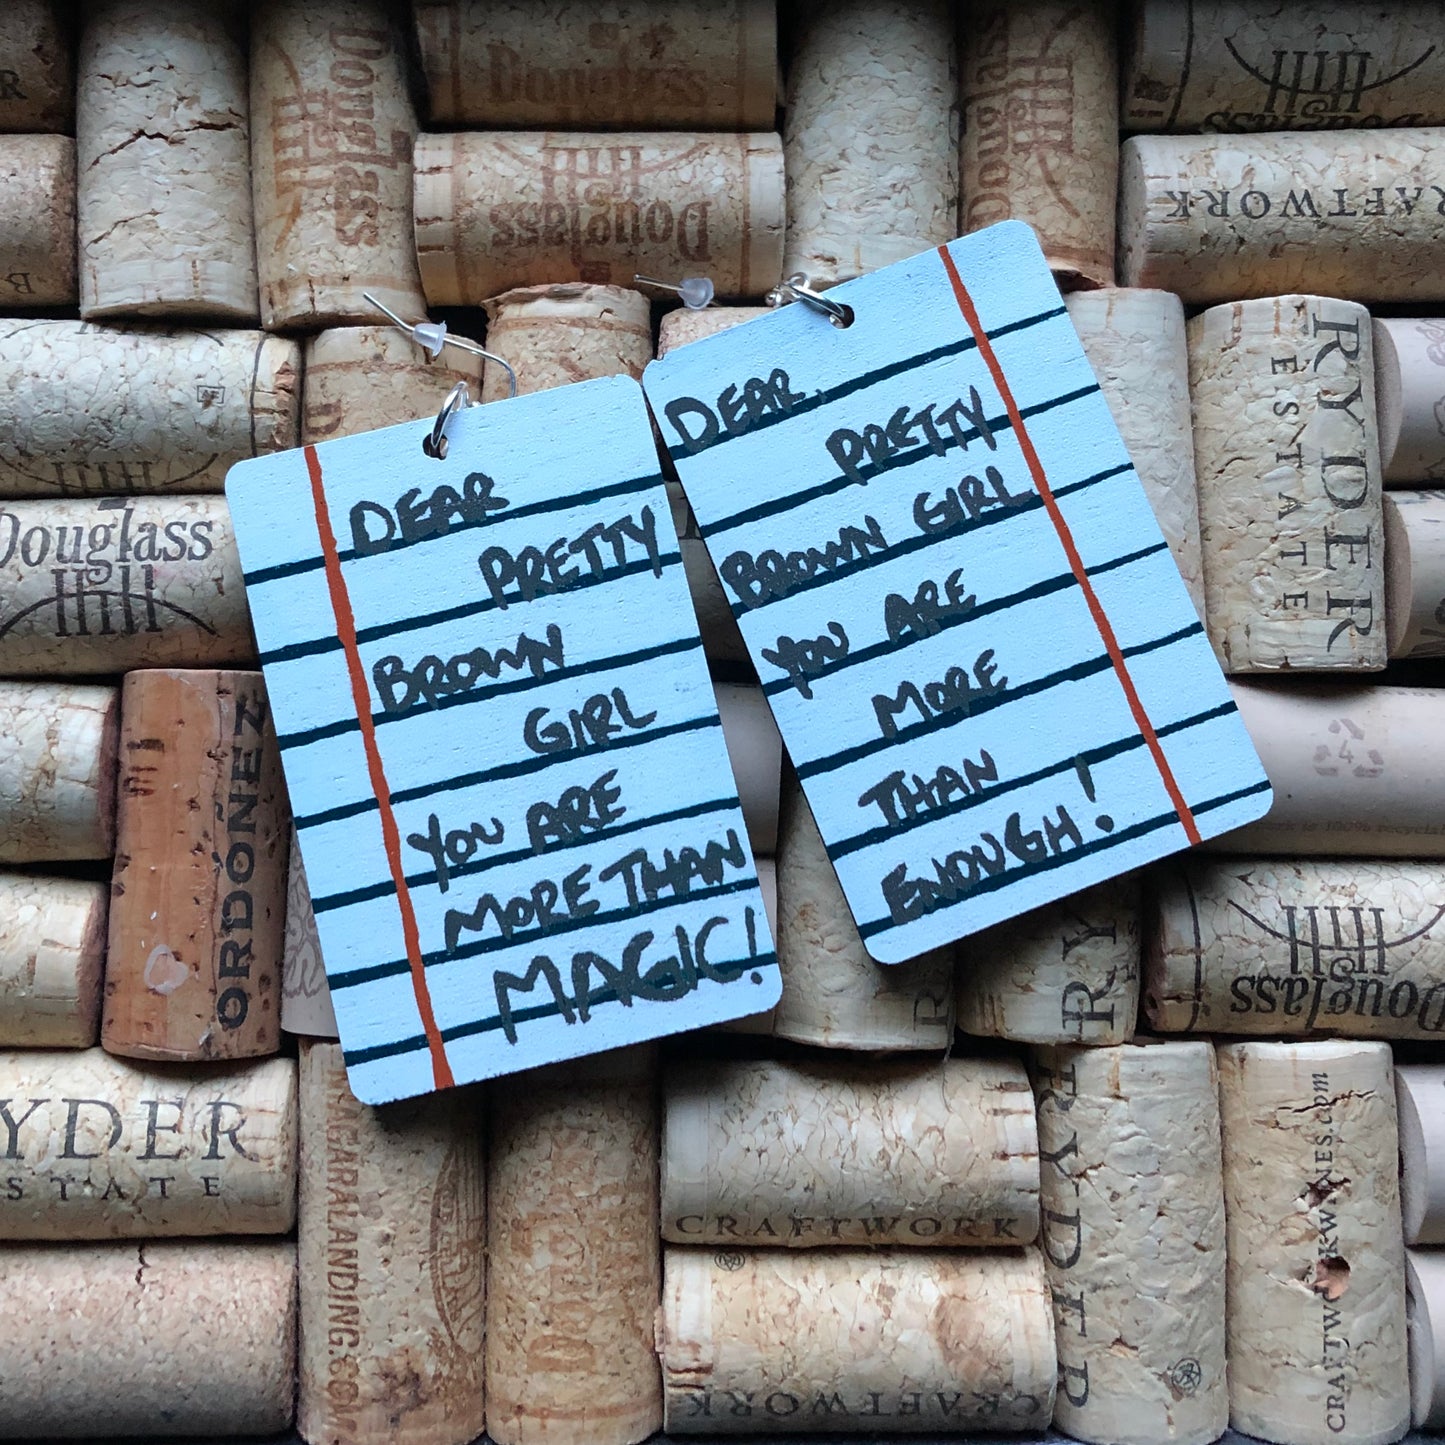 DEAR
PRETTY
BROWN
GIRL
YOU ARE
MORE THAN
MAGIC!
DEAR,
PRETTY
BROWN GIRL
YOU ARE
MORE
THAN
ENOUGH!
Douglass
Hill
Douglass
Hill
Douglass
Douglass
Hill
Douglass
Hill
CRAFTWORK
RYDER
ESTATE
Douglass
Hill
ORDÓÑEZ
Hill
Douglass
RY
YDER
STATE
AGARALANDING.COM
CRAFTWORK
CRAFTWORK
RYDER
CRAFTWORKWINES.com